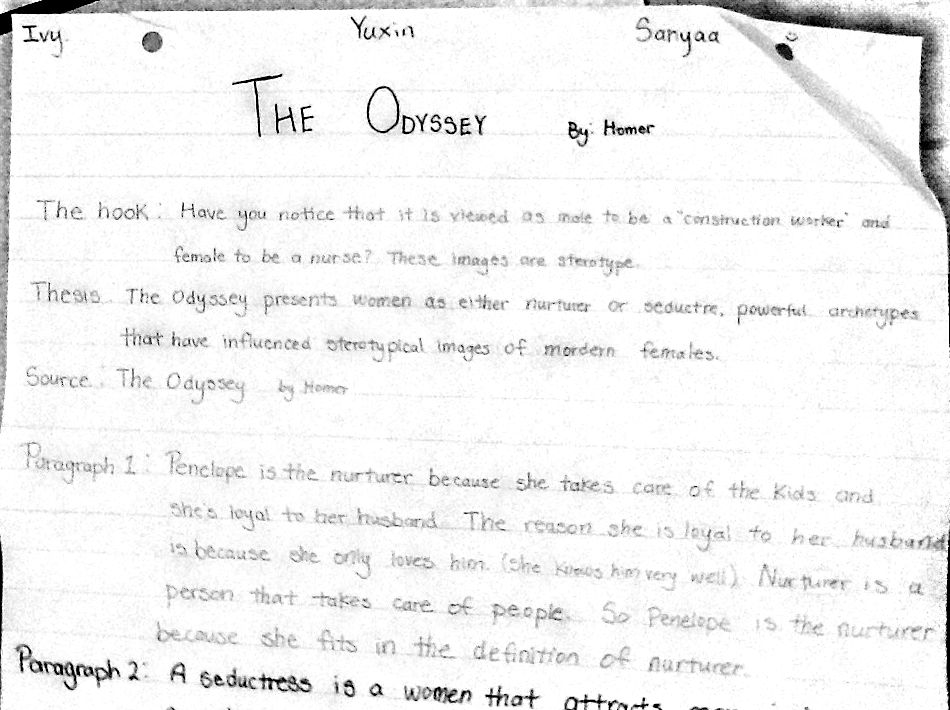 Ivy Yuxin Sanyaa
THE ODYSSEY By: Homer
The hook: Have you notice that it is viewed as male to be a "construction worker" and
female to be a nurse? These images are sterotype.
Thesis: The Odyssey presents women as either nurturer or seductre, powerful archetypes
that have influenced sterotypical images of mordern females.
Source: The Odyssey by Homer
Paragraph 1: Penelope is the nurturer because she takes care of the kids and
she's loyal to her husband. The reason she is loyal to her husband
is because she only loves him. (she knows him very well). Nurturer is a
person that takes care of people. So Penelope is the nurturer
because she fits in the definition of nurturer.
Paragraph 2: A seductress is a women that attracts